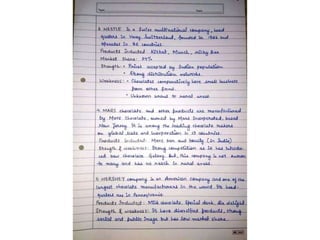 Topic Date
3. NESTLE is a Swiss multinational company, head
quaters in Vevey Switzerland, founded in 1866 and
operates in 86 countries.
Products included Kitkat, Munch, milky Bar
Market Share: 24%
Strength: • Point accepted by Indian population.
• Strong distribution network.
Weakness: • Chocolates comparatively have small business
from other firms.
• Unknown market to rural areas.
4. MARS chocolate and other products are manufactured
by Mars chocolate, owned by Mars Incorporated, based
New Jersey. It is among the leading chocolate makers
on global scale and incorporation in 19 countries.
Products included: Mars bar and bounty (in India)
Strength & weakness: Strong competition as it has introdu
ced new chocolate Galaxy. But, this company is not known
to many and has no reach in rural areas.
5. HERSHEY company is an American company and one of the
largest chocolate manufacturers in the world. Its head-
quaters are in Pennsylvania.
Products Included: Milk chocolate, Special dark, air delight
Strength & weakness: It have diversified products, strong
social and public image but has low market share.